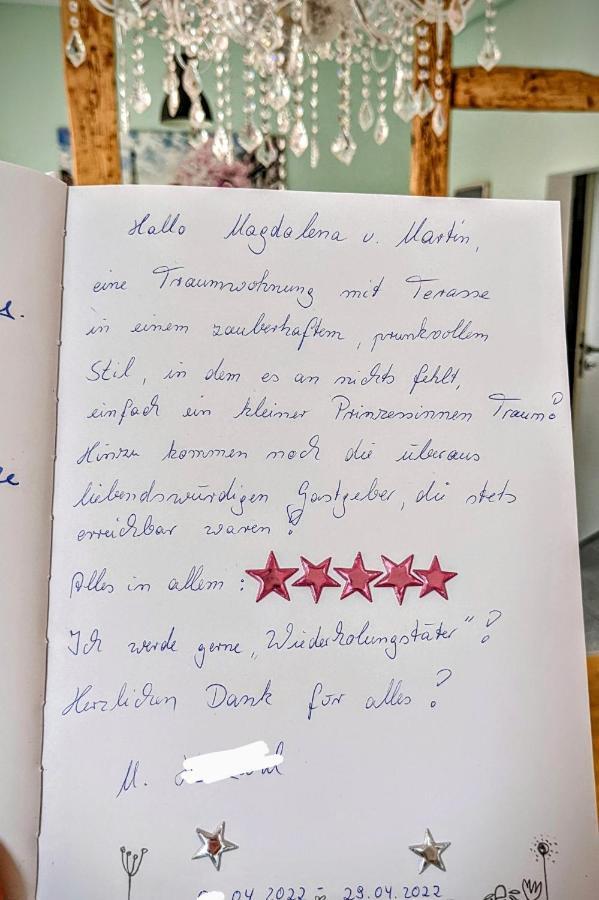 Hallo Magdalena u. Martin,
eine Traumwohnung mit Terasse
in einem zauberhaftem, prunkvollem
Stil, in dem es an nichts fehlt,
einfach ein kleiner Prinzessinnen Traum!
Hinzu kommen noch die überaus
liebendswürdigen Gastgeber, die stets
erreichbar waren!
Alles in allem:
Ich werde gerne „Wiederholungstäter"!
Herzlichen Dank für alles!
M.
04.2022 - 29.04.2022